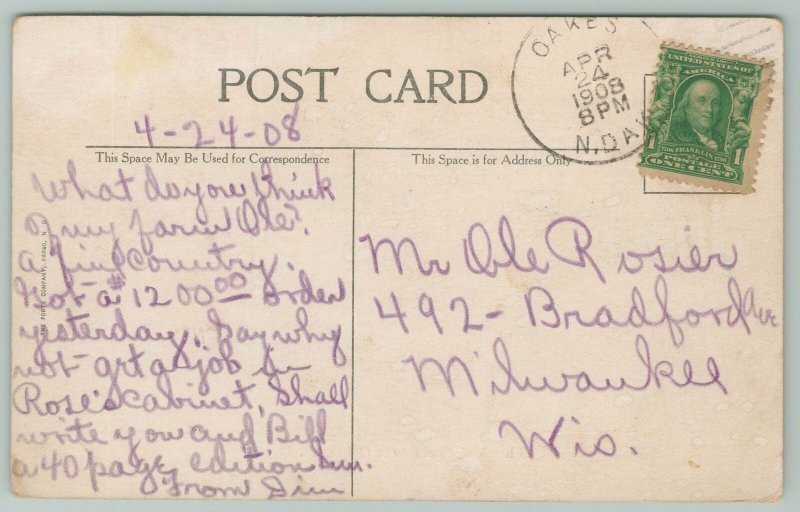 POST CARD
OAKES
APR
24
1908
8 PM
N.DAK
UNITED STATES OF
AMERICA
1706 FRANKLIN 1790
POSTAGE
1 ONE CENT 1
4-24-08
This Space May Be Used for Correspondence
This Space is for Address Only
What do you think
of my farm Ole?
a fine country.
Got a $1200.00 order
yesterday. Say why
not get a job in
Rose's cabinet, Shall
write you and Bill
a 40 page edition Sun.
From Sim
Mr Ole Rosier
492- Bradford Ave
Milwaukee
Wis.
COMPANY, FARGO, N. D.